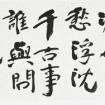 愁浮沈
千古事
誰與問